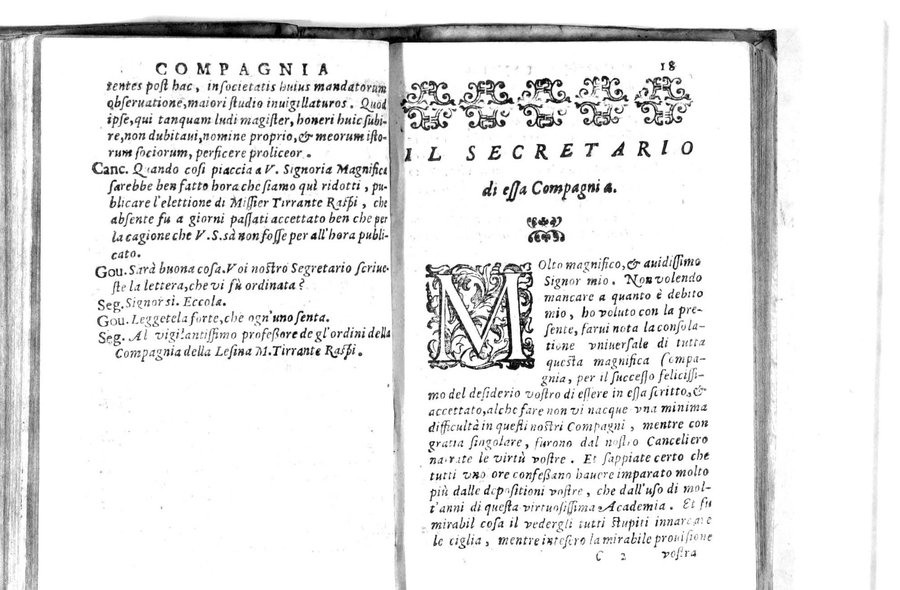 COMPAGNIA
tentes post hac, in societatis huius mandatorum
observatione, maiori studio invigillaturos. Quod
ipse, qui tanquam ludi magister, honeri huic subi-
re, non dubitavi, nomine proprio, & meorum isto-
rum sociorum, perficere proliceor.
Canc. Quando così piaccia a V. Signoria Magnifica
sarebbe ben fatto hora che siamo quì ridotti, pu-
blicare l'elettione di Missier Tirrante Raspi, che
absente fu a giorni passati accettato ben che per
la cagione che V. S. sà non fosse per all'hora publi-
cato.
Gou. Sarà buona cosa. Voi nostro Segretario scriue-
ste la lettera, che vi fù ordinata?
Seg. Signor si. Eccola.
Gou. Leggetela forte, che ogn'uno senta.
Seg. Al vigilantissimo professore de gl'ordini della
Compagnia della Lesina M. Tirrante Raspi.
18
IL SECRETARIO
di essa Compagnia.
MOlto magnifico, & auidissimo
Signor mio. Non volendo
mancare a quanto è debito
mio, ho voluto con la pre-
sente, farui nota la consola-
tione vniuersale di tutta
questa magnifica Compa-
gnia, per il successo felicissi-
mo del desiderio vostro di essere in essa scritto, &
accettato, al che fare non vi nacque vna minima
difficultà in questi nostri Compagni, mentre con
gratia singolare, furono dal nostro Canceliero
narrate le virtù vostre. Et sappiate certo che
tutti vno ore confessano hauere imparato molto
più dalle depositioni vostre, che dall'uso di mol-
t'anni di questa virtuosissima Academia. Et fu
mirabil cosa il vedergli tutti stupiti innarcare
le ciglia, mentre intesero la mirabile prouisione
C 2 vostra